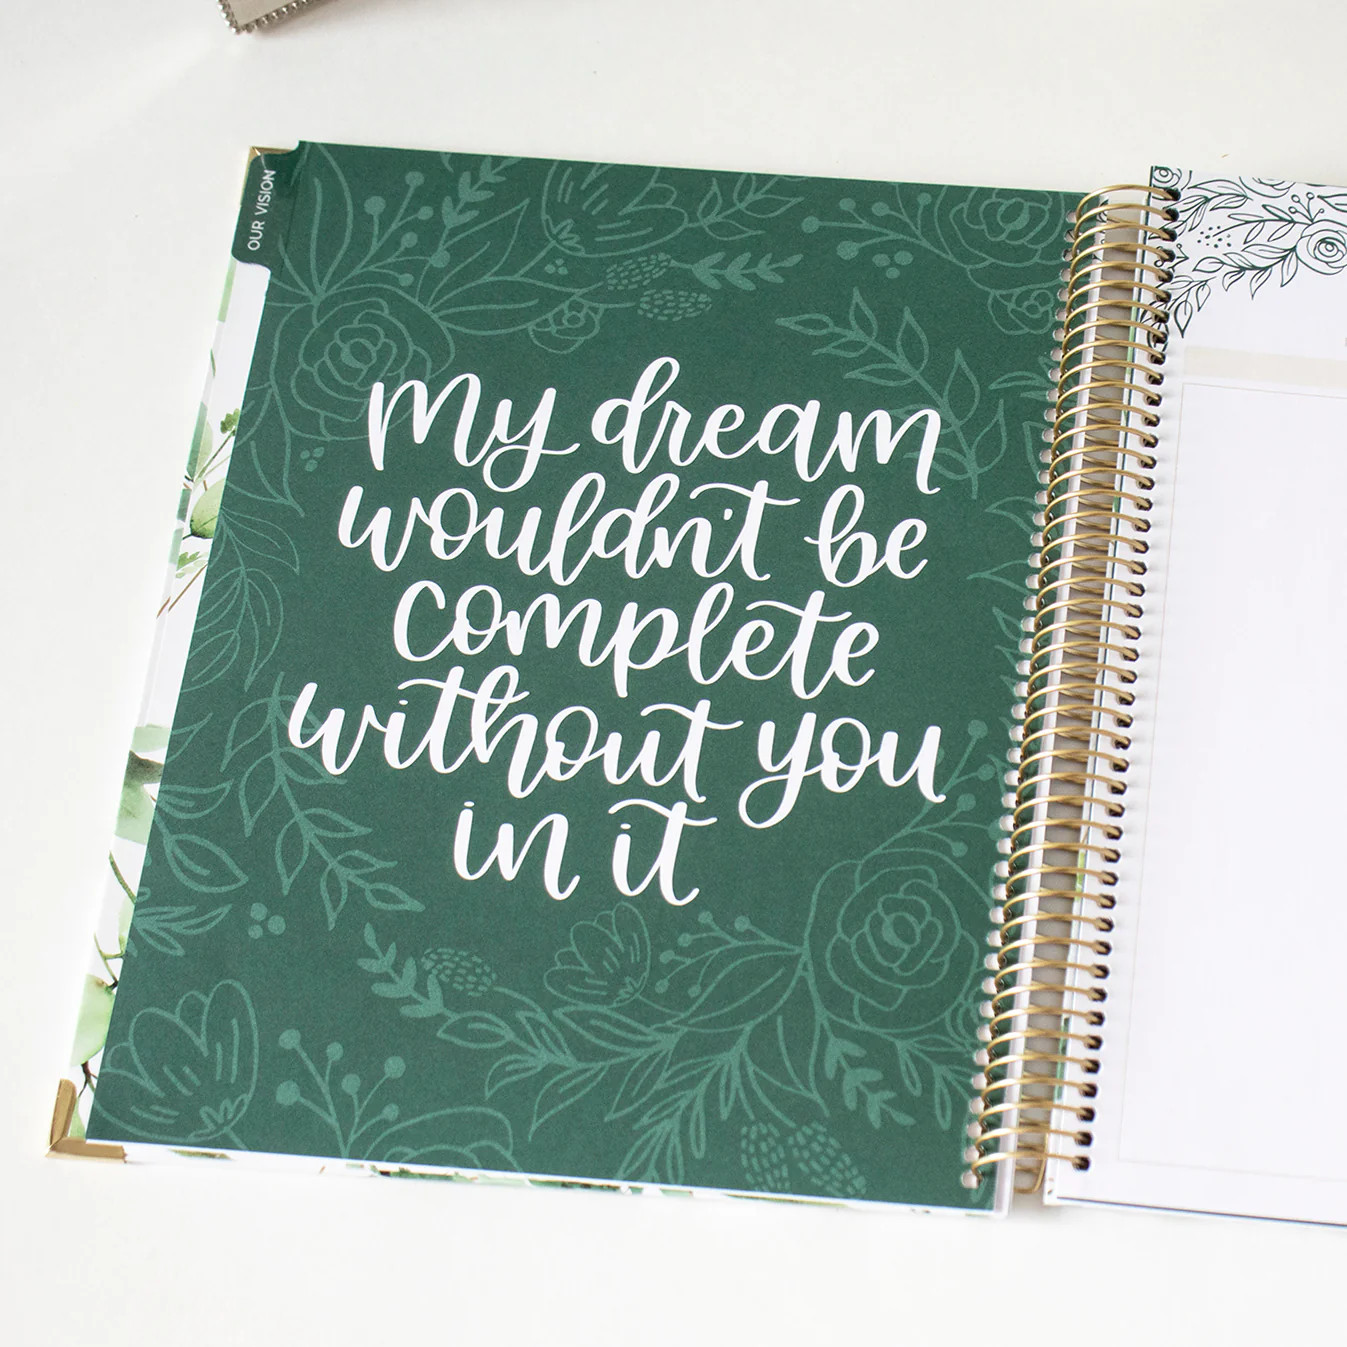 OUR VISION
My dream
wouldn't be
complete
without you
in it